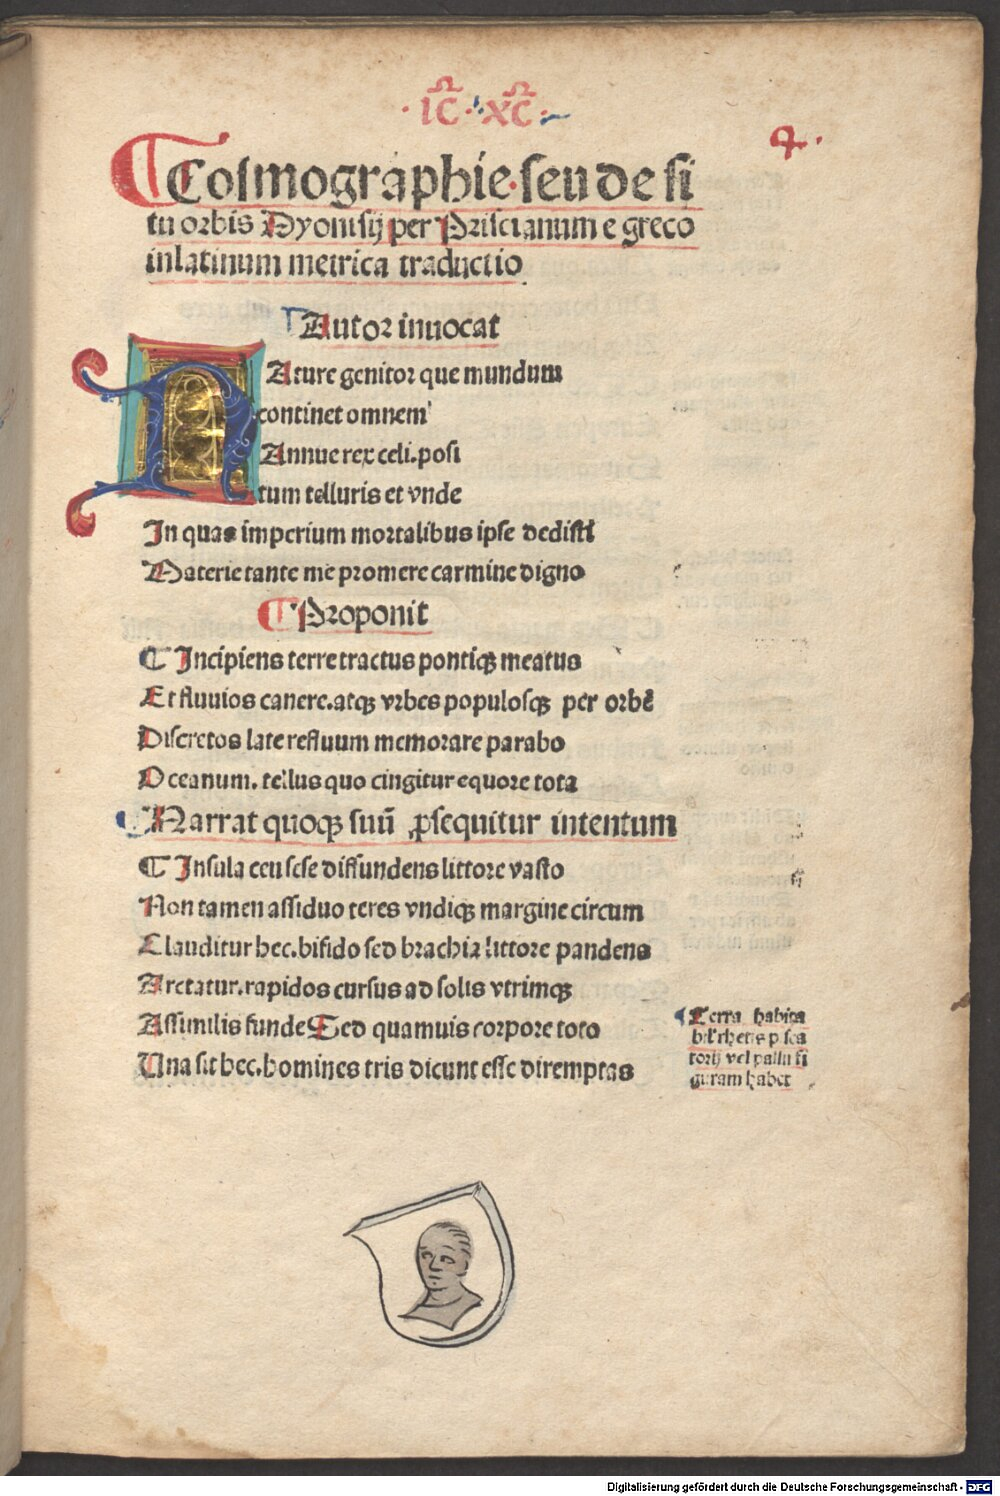 IC XC
4.
Cosmographie. seu de si
tu orbis Dyonisij per Priscianum e greco
in latinum metrica traductio
Autor inuocat
NAture genitor que mundum
continet omnem
Annue rex celi. posi
tum telluris et vnde
In quas imperium mortalibus ipse dedisti
Materie tante me promere carmine digno
Proponit
Incipiens terre tractus pontiqꝫ meatus
Et fluuios canere. atqꝫ vrbes populosqꝫ per orbē
Discretos late refluum memorare parabo
Oceanum. tellus quo cingitur equore tota
Narrat quoqꝫ suū ꝓsequitur intentum
Insula ceu sese diffundens littore vasto
Non tamen assiduo teres vndiqꝫ margine circum
Clauditur hec. bifido sed brachia littore pandens
Arctatur. rapidos cursus ad solis vtrimqꝫ
Assimilis funde Sed quamuis corpore toto
Una sit hec. homines tris dicunt esse diremptas
Terra habita
torij vel pallii fi
guram habet
Digitalisierung gefördert durch die Deutsche Forschungsgemeinschaft - DFG